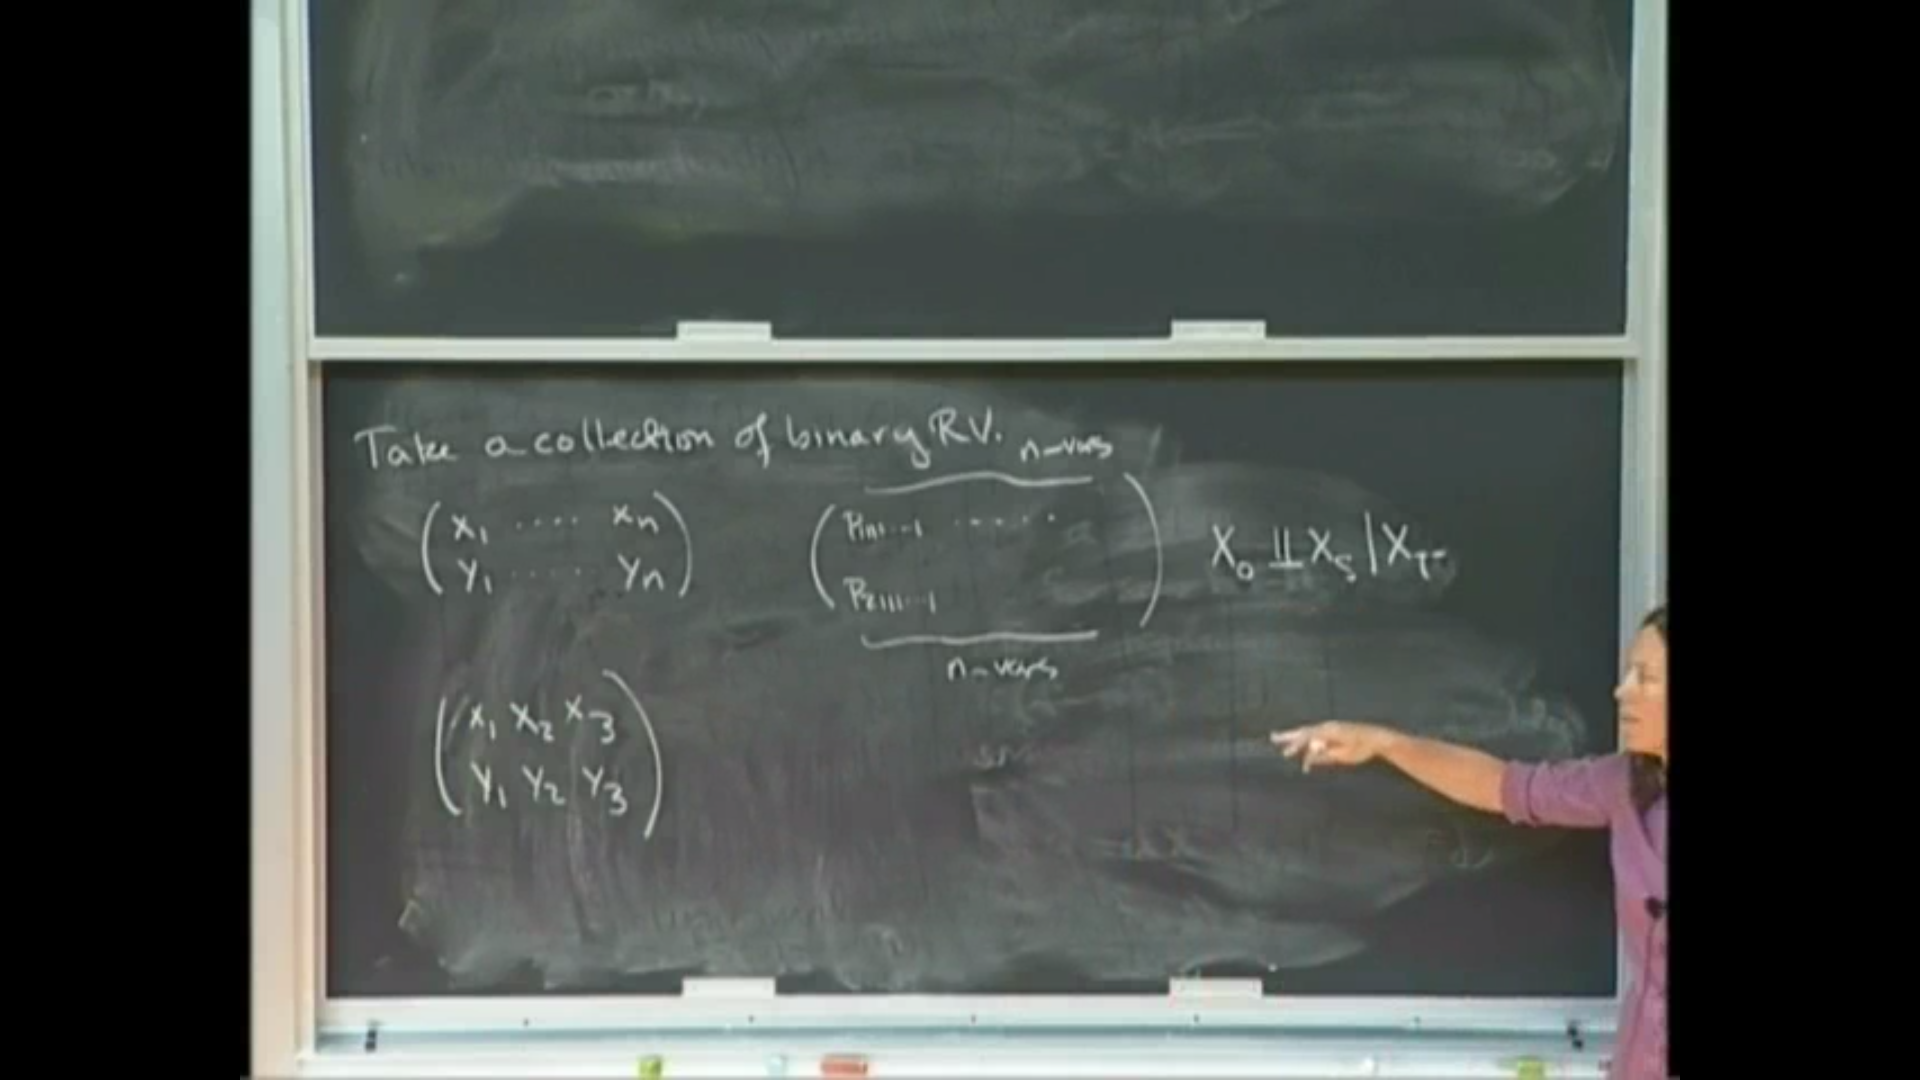 Take a collection of binary RV.
n-vars
( x₁ ..... xₙ )
( y₁ ..... yₙ )
( P₁₁₁...₁ ...... )
( P₂₁₁₁...₁ )
n-vars
X₀ ⫫ X_S | X_T
( x₁ x₂ x₃ )
( y₁ y₂ y₃ )